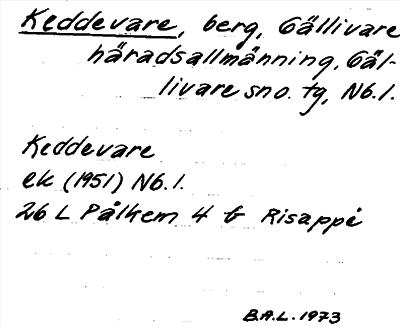 Keddevare, berg, Gällivare
häradsallmänning, Gäl-
livare sno. tg, Nb.l.
Keddevare
ek (1951) Nb.l.
26 L Pålkem 4 b Risappé
B.A.L. 1973